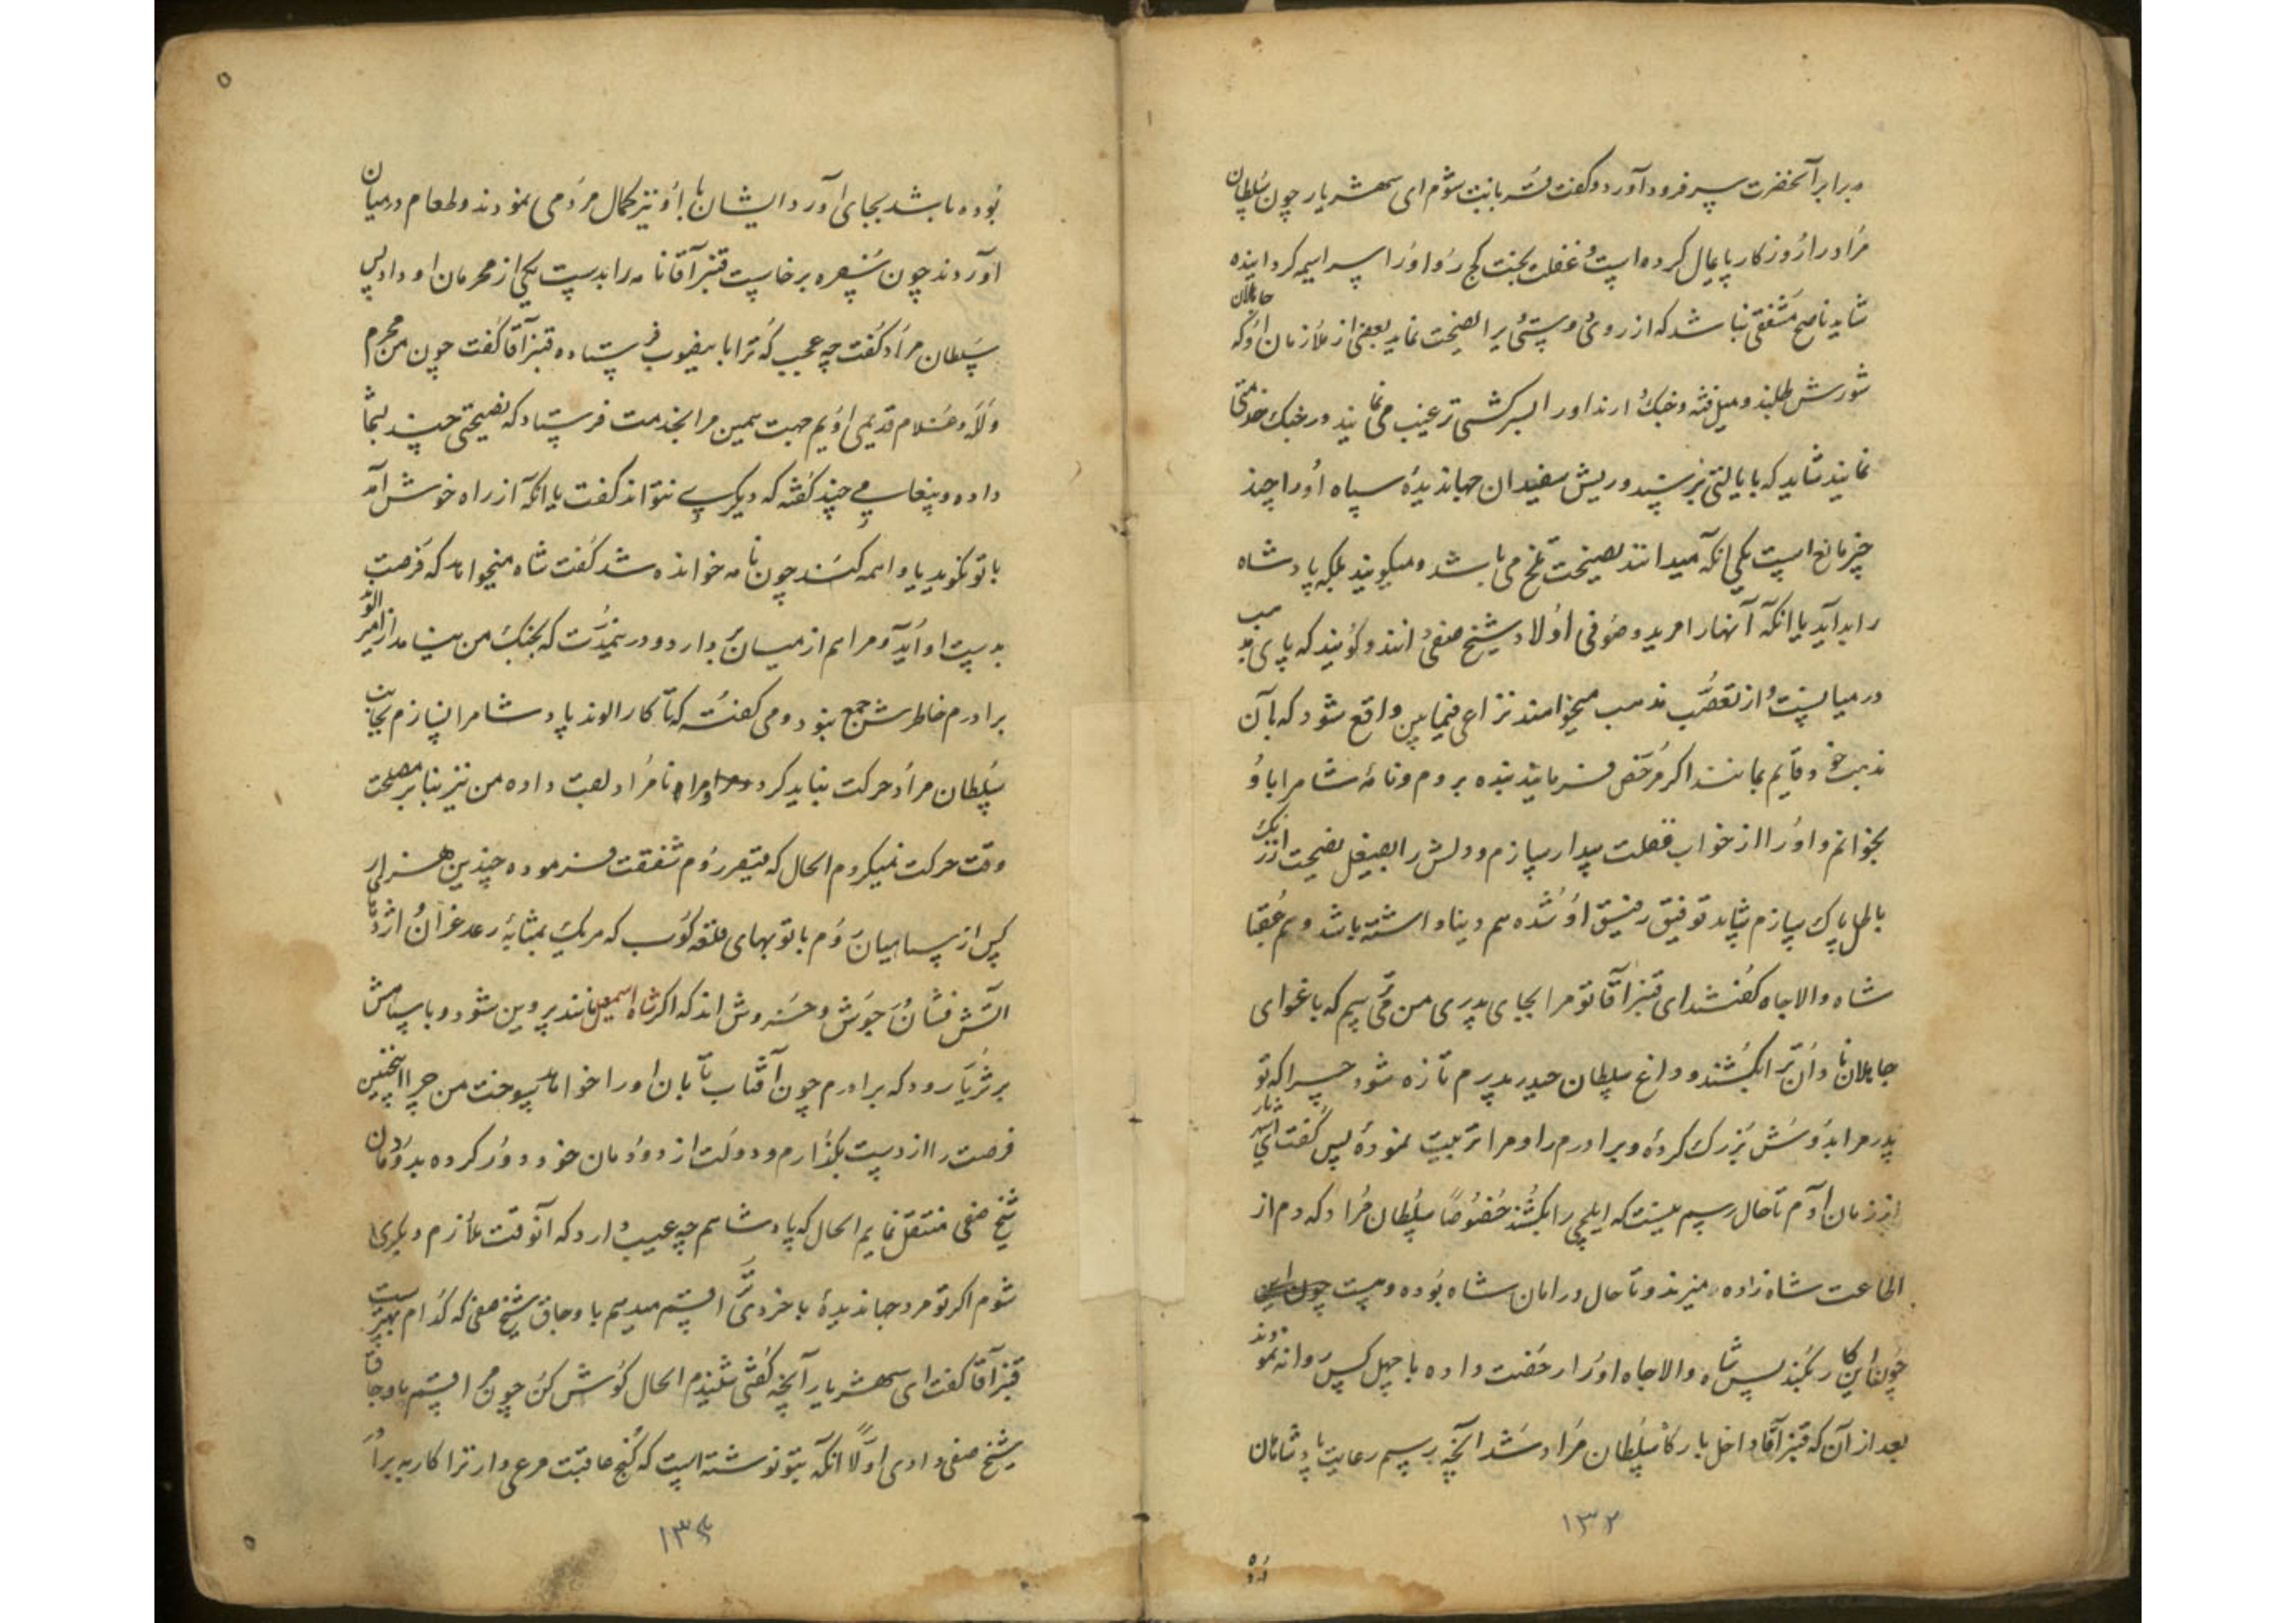 برابر آنحضرت سر فرود آورد و گفت قربانت شوم ای شهریار چون سلطان
مراد را روزگار پایمال کرده است و غفلت بخت کج رو او را سراسیمه گردانیده
شاید ناصح مشفقی نباشد که از روی دوستی برا نصیحت نماید بعضی از ملازمان او که جاهلان
شورش طلبند و میل فتنه و جنک دارند او را بسرکشی ترغیب می نمایند و در جنک
نمایند شاید که بایالتی برسند و ریش سفیدان جهاندیدۀ سپاه او را چند
چیز مانع است یکی انکه میدانند نصیحت تلخ می باشد و میکویند بلکه پادشاه
را بد آید یا انکه آنها را مرید و صوفی اولاد شیخ صفی دانند و کویند که پای مذهب
در میانست و از تعصب مذهب میخواهند نزاعی فیمابین واقع شود که بآن
مذهب خود قایم بمانند اکر مرخص فرمایند بنده بروم و نامۀ شاه را باو
بخوانم و او را از خواب غفلت بیدار سازم و دلش را بصیقل نصیحت از زنک
باطل پاک سازم شاید توفیق رفیق او شده هم دنیا داشته باشد و هم عقبا
شاه والاجاه کفتند ای قنبر آقا تو مرا بجای پدری من می ترسم که باغوای
جاهلان نادان ترا بکشند و داغ سلطان حیدر پدرم تازه شود چرا که تو
پدر مرا بدوش بزرک کردۀ و برادرم را و مرا تربیت نمودۀ پس کفت ای شهریار
از زمان آدم تا حال رسم نیست که ایلچی را بکشند خصوصاً سلطان مراد که دم از
اطاعت شاه زاده میزند و تا حال در امان شاه بوده و هست
چون این کار نکند پس شاه والاجاه او را رخصت داده با چهل کس روانه نمودند
بعد از آن که قنبر آقا داخل بارکاه سلطان مراد شد آنچه رسم رعایت پادشاهان
۱۳۲
بوده باشد بجای آورد ایشان با او نیز کمال مردمی نمودند و طعام در میان
آوردند چون سفره برخاست قنبر آقا نامه را بدست یکی از محرمان او داد پس
سلطان مراد کفت چه عجب که ترا با یعقوب فرستاده قنبر آقا کفت چون من محرم
و لله و غلام قدیمی اویم جهت همین مرا بخدمت فرستاد که نصیحتی چند بشما
داده و پیغامی چند کفته که دیکری نتواند کفت یا انکه از راه خوش آمد
با تو نکوید یا واهمه کند چون نامه خوانده شد کفت شاه میخواهد که فرصت
بدست او آید و مرا هم از میان بردارد و در نیمدت که بجنک من نیامد از امیر الوند
برادرم خاطرش جمع نبود و می کفت که تا کار الوند پادشاه را نسازم بجانب
سلطان مراد حرکت نباید کرد و مرا نامراد لعبت داده من نیز بنا بر مصلحت
وقت حرکت نمیکردم الحال که قیصر روم شفقت فرموده چندین هزار
کس از سپاهیان روم با توبهای قلعه کوب که هریک بمثابۀ رعد غران و اژدهای
آتش فشان در جوش و خروش اند که اکر شاه اسمعیل مانند پروین شود و با سپاهش
بر ثریا رود که برادرم چون آفتاب تابان او را خواهد سوخت من چرا اینچنین
فرصت را از دست بکذارم و دولت از دودمان خود دور کرده بدودمان
شیخ صفی منتقل نمایم الحال که پادشاهم چه عیب دارد که آنوقت ملازم دیکری
شوم اکر تو مرد جهاندیدۀ با خردی ترا قسم میدهم باوجاق شیخ صفی که کدام بهتر است
قنبر آقا کفت ای شهریار آنچه کفتی شنیدم الحال کوش کن چون مرا قسم باوجاق
شیخ صفی دادی اولاً انکه بتو نوشته است که کنج عافیت مرعی دار ترا کار به برادر
۱۳۴